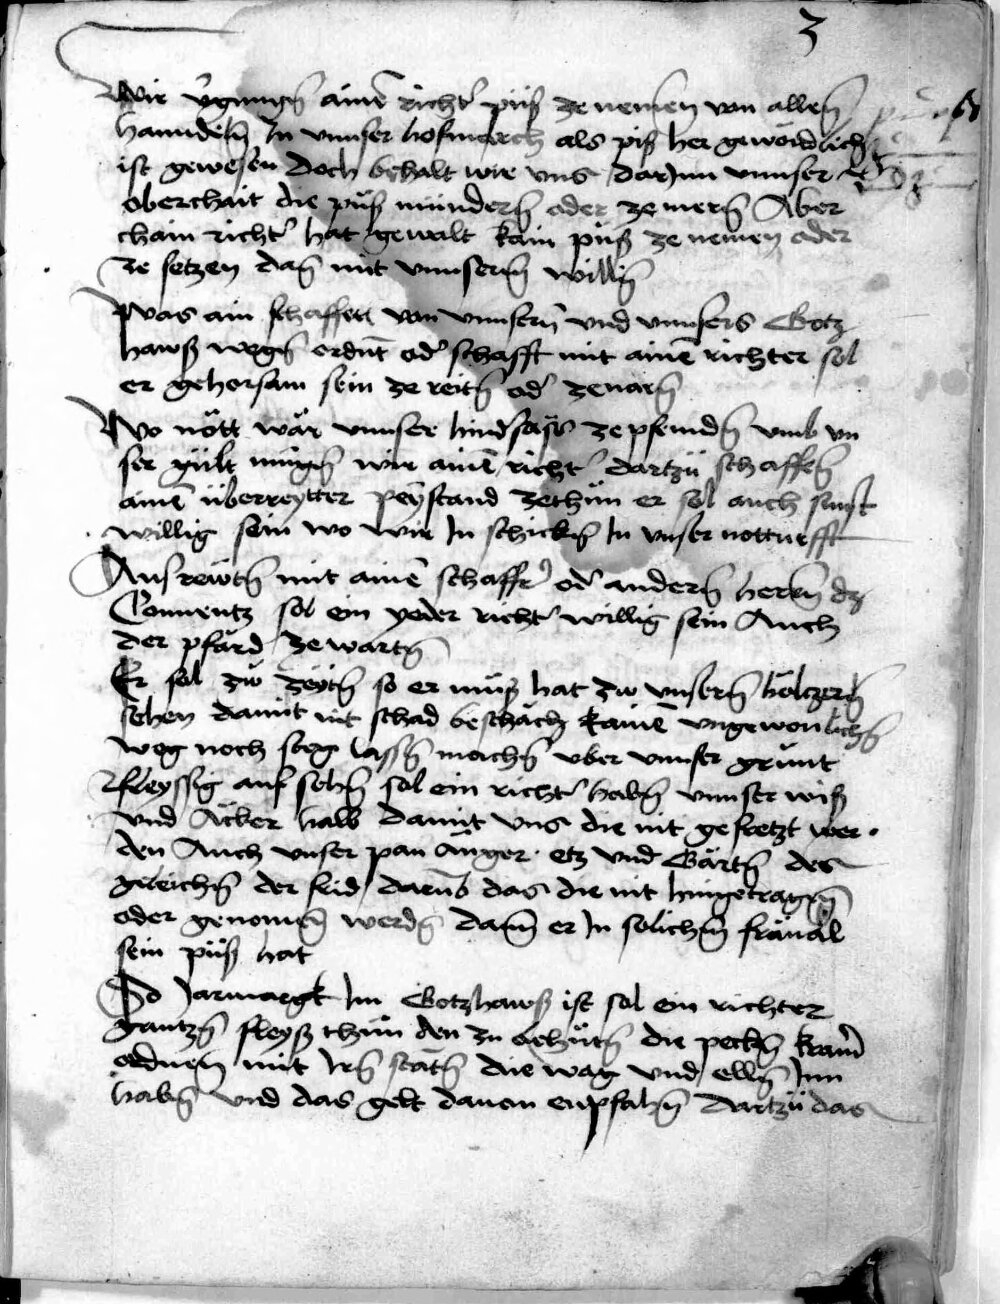 3
Wir vgunnen aine richt' püß ze nemen von allen
hanndeln In vnnser hofmarch als piß her gewondlich
ist gewesen Doch behalt wir vns darjnn vnnser
oberchait die püß mindern oder ze mern Aber
chain richt' hat gewalt kain püß ze nemen oder
ze setzen dan mit vnnserm willen
Was ain schaffett von vnnsern vnd vnnsers Gotz
hawß wegen ordnt od' schafft mit aine richter sol
er gehorsam sein ze reiten od' ze varn
Wo nött wär vnnser hindsäss ze pfennden vmb vn
ser gült mugen wir aine richt' dartzü schaffen
aine überreytter peystand ze thün er sol auch sunst
willig sein wo wir In schicken In vnser notturfft
Ausreitten mit aine schaff' od' andern herren dz
Conuentz sol ein yeder richt' willig sein Auch
der pfärd ze warten
Er sol zw zeyten so er müß hat zw vnsern höltzern
sehen damit nit schad beschäch kaine vngewonlichen
weg noch steg lassen machen vber vnnser grünt
fleyssig auf sehen sol ein richt' haben vnnser wiß
vnd Äcker halb damit vns die nit gefretzt wer
den Auch vnser pan änger etz vnd Gärten des
gleichen der frid darüb das die nit hingetragen
oder genomen werden dann er In solichem fräuäl
sein püß hat
So Jarmargkt Im Gotzhawß ist sol ein richter
gantzen fleyß thün den zu behüten die pecken kramer
ordnen mit Iren stäten die wag vnd ellen Inn
haben vnd das gelt dauon enpfahen Dartzü das